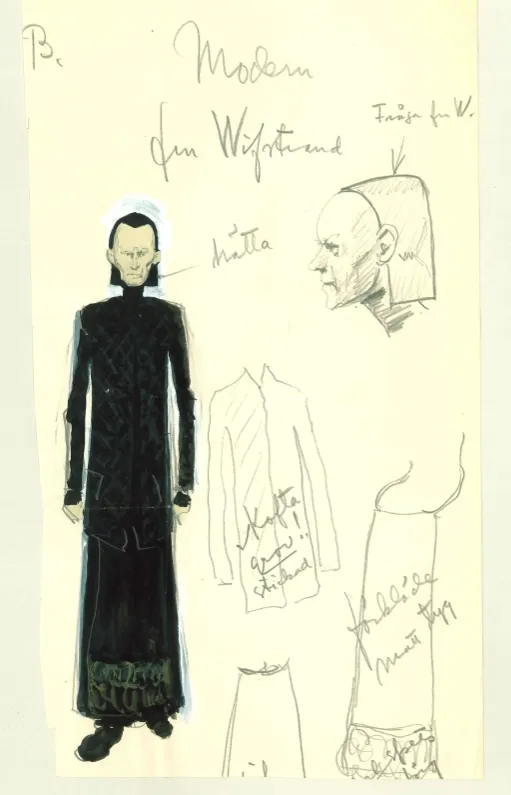 B.
Modern
fru Wifstrand
Fråga fru W.
hätta
Kofta
grov!!
stickad
förkläde
matt tyg